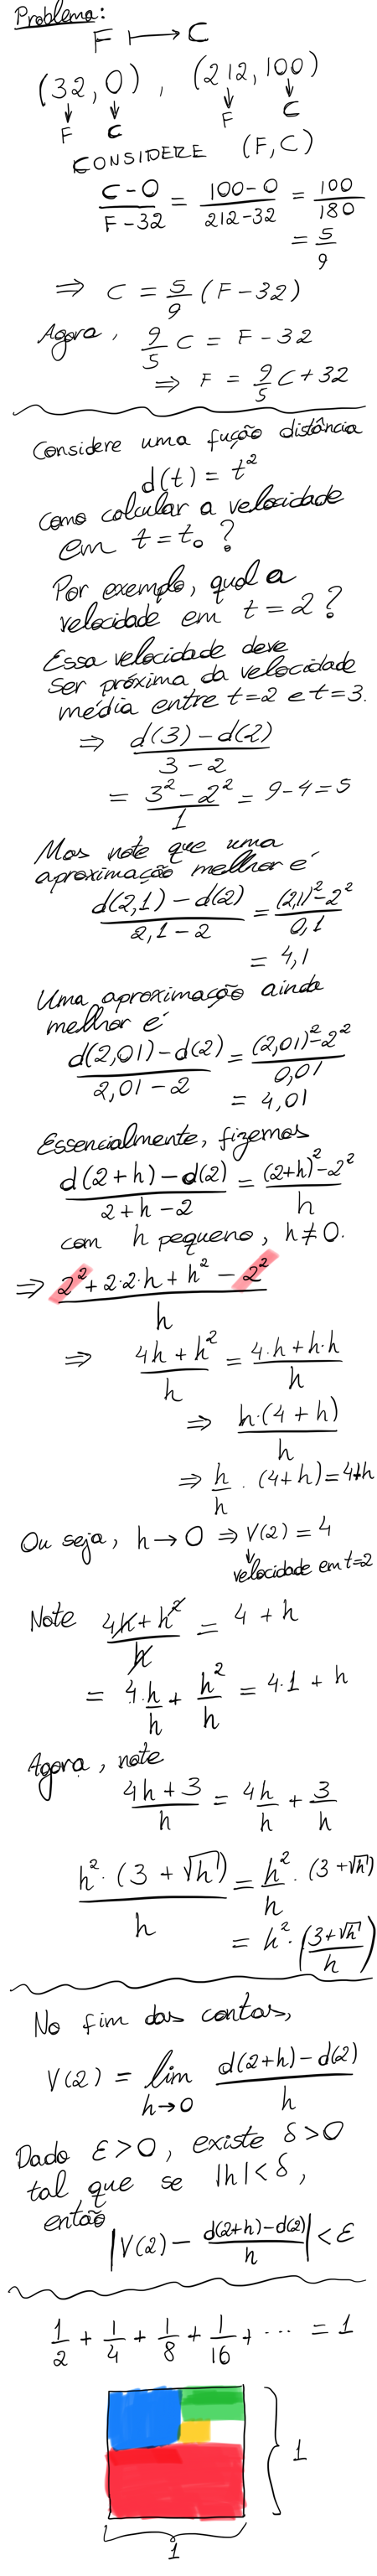 Problema:
F ⟼ C
(32, 0) , (212, 100)
↓ ↓ ↓ ↓
F C F C
CONSIDERE (F, C)
(C - 0)/(F - 32) = (100 - 0)/(212 - 32) = 100/180
= 5/9
⇒ C = 5/9 (F - 32)
Agora, 9/5 C = F - 32
⇒ F = 9/5 C + 32
Considere uma fução distância
d(t) = t²
Como calcular a velocidade
em t = t₀ ?
Por exemplo, qual a
velocidade em t = 2 ?
Essa velocidade deve
ser próxima da velocidade
média entre t=2 e t=3.
⇒ (d(3) - d(2))/(3 - 2)
= (3² - 2²)/1 = 9 - 4 = 5
Mas note que uma
aproximação melhor é
(d(2,1) - d(2))/(2,1 - 2) = ((2,1)² - 2²)/0,1
= 4,1
Uma aproximação ainda
melhor é
(d(2,01) - d(2))/(2,01 - 2) = ((2,01)² - 2²)/0,01
= 4,01
Essencialmente, fizemos
(d(2+h) - d(2))/(2 + h - 2) = ((2+h)² - 2²)/h
com h pequeno, h ≠ 0.
⇒ (2² + 2·2·h + h² - 2²)/h
⇒ (4h + h²)/h = (4·h + h·h)/h
⇒ (h·(4 + h))/h
⇒ h/h · (4+h) = 4+h
Ou seja, h → 0 ⇒ V(2) = 4
↓
velocidade em t=2
Note (4h + h²)/h = 4 + h
= 4·h/h + h²/h = 4·1 + h
Agora, note
(4h + 3)/h = 4h/h + 3/h
(h²·(3 + √h))/h = h²/h · (3 + √h)
= h²·((3 + √h)/h)
No fim das contas,
V(2) = lim h→0 (d(2+h) - d(2))/h
Dado ε > 0, existe δ > 0
tal que se |h| < δ,
então
|V(2) - (d(2+h) - d(2))/h| < ε
1/2 + 1/4 + 1/8 + 1/16 + ... = 1
1
1